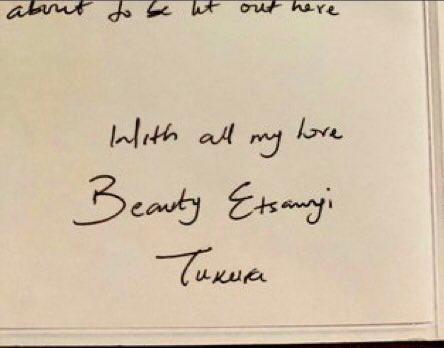 about to be let out here
With all my love
Beauty Etsanyi
Tukura